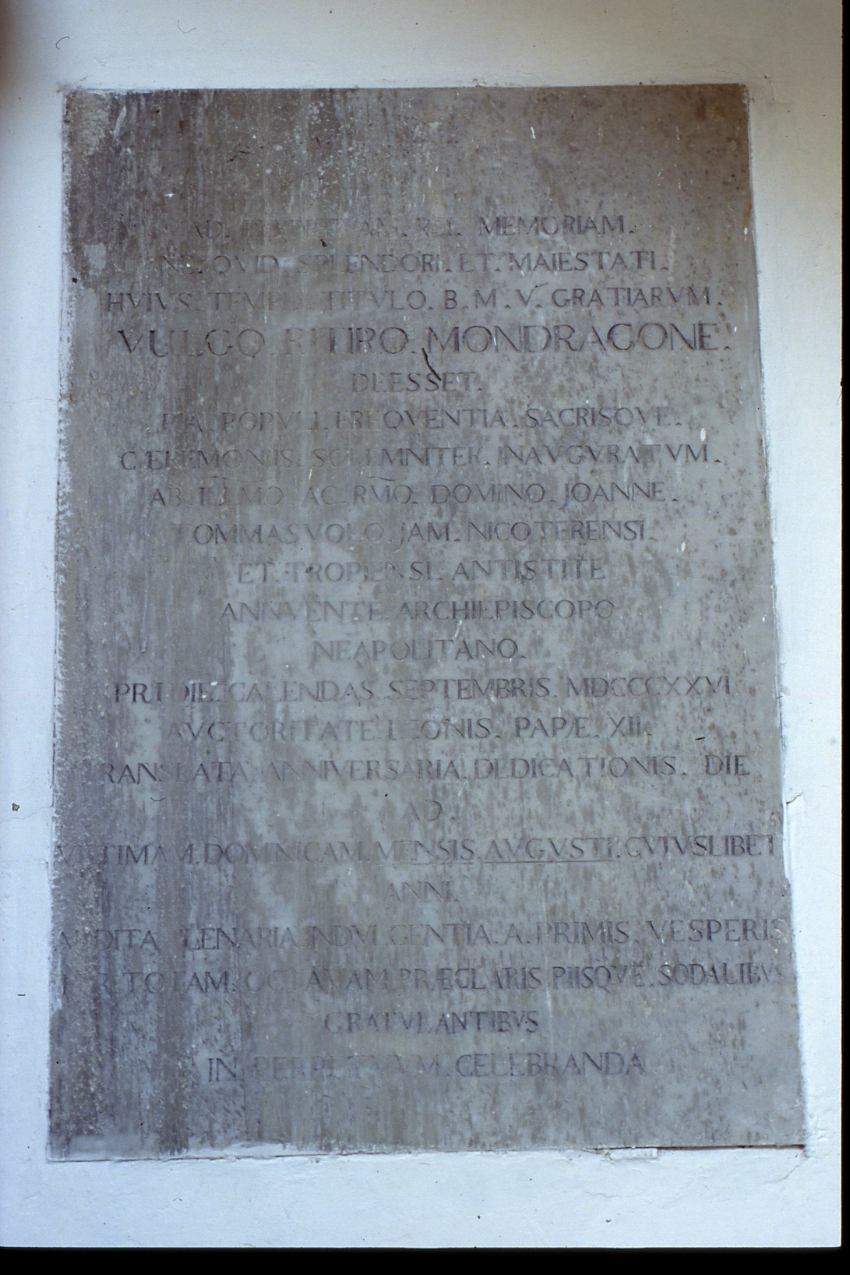 AD. PERPETVAM. REI. MEMORIAM.
NE. QVID. SPLENDORI. ET. MAIESTATI.
HVIVS. TEMPLI. TITVLO. B. M. V. GRATIARVM.
VULGO. RITIRO. MONDRAGONE.
DEESSET.
PIA. POPVLI. FREQVENTIA. SACRISQVE.
CÆREMONIIS. SOLEMNITER. INAVGVRATVM.
AB. ILLMO. AC. RMO. DOMINO. JOANNE.
TOMMASVOLO. JAM. NICOTERENSI.
ET. TROPIENSI. ANTISTITE
ANNVENTE ARCHIEPISCOPO
NEAPOLITANO.
PRIDIE. CALENDAS. SEPTEMBRIS. MDCCCXXVI
AVCTORITATE LEONIS. PAPÆ. XII.
TRANSLATA. ANNIVERSARIA. DEDICATIONIS. DIE
AD.
VLTIMAM. DOMINICAM. MENSIS. AVGVSTI. CVIVSLIBET
ANNI.
ADDITA PLENARIA. INDVLGENTIA. A. PRIMIS. VESPERIS
PER TOTAM. OCTAVAM. PRÆCLARIS PIISQVE. SODALIBVS
GRATVLANTIBVS
IN. PERPETVVM. CELEBRANDA